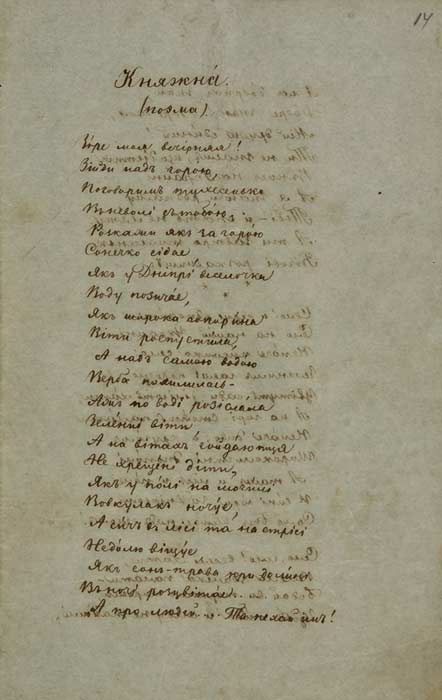 14
Княжна.
(поэма)
Зоре моя вечірняя!
Зійди надъ горою,
Поговоримъ тихесенько
Въ неволі зъ тобою:
Роскажи якъ за горою
Сонечко сідає
Якъ у Дніпрі веселочка
Воду позичає,
Якъ широка
Віти роспустила,
А надъ самою водою
Верба похилилась
Ажъ по воді розіслала
Зелениї віти
А на вітахъ гойдаютця
Не хрещені діти,
Якъ у полі на могилі
Вовкулакъ ночує,
А сичъ въ лісі та на стрісі
Недолю віщує
Якъ сонъ-трава
Въ ночі розцвітає..
А про людей.. Та нехай імъ!